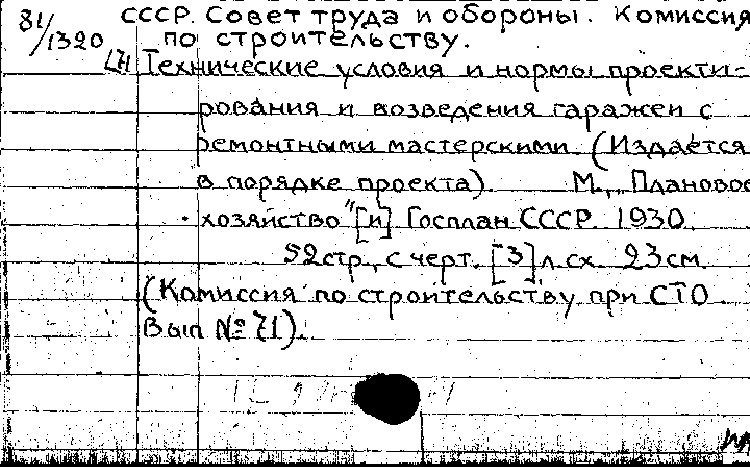 81/1320 СССР. Совет труда и обороны. Комиссия
по строительству.
[71] Технические условия и нормы проекти-
рования и возведения гаражей с
ремонтными мастерскими. (Издаётся
в порядке проекта). М., „Плановое
хозяйство" [и] Госплан СССР. 1930.
52 стр., с черт. [3] л. сх. 23 см.
(Комиссия по строительству при СТО
Вып № 71).